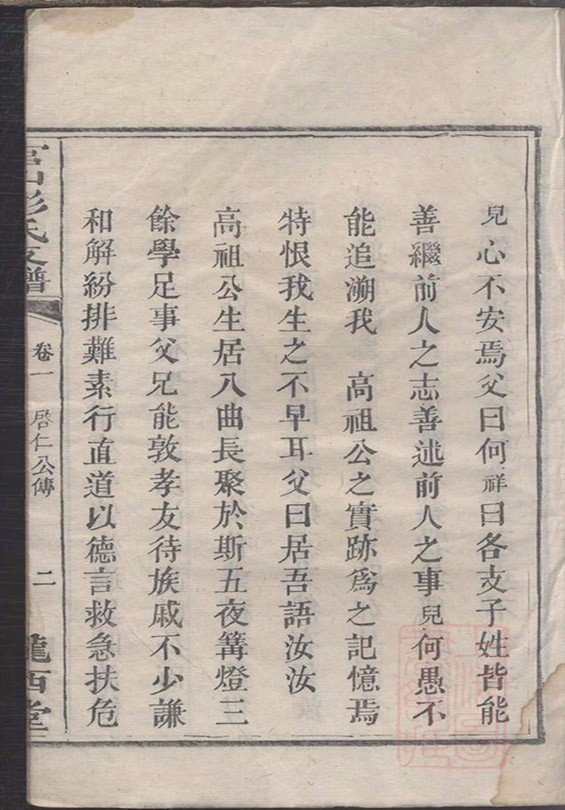 兒心不安焉父曰何祥曰各支子姓皆能
善繼前人之志善述前人之事兒何愚不
能追溯我　高祖公之實跡為之記憶焉
特恨我生之不早耳父曰居吾語汝汝
高祖公生居入曲長聚於斯五夜篝燈三
餘學足事父兄能敦孝友待族戚不少謙
和解紛排難素行直道以德言救急扶危
彭氏支譜
卷一
啓仁公傳
二
隴西堂